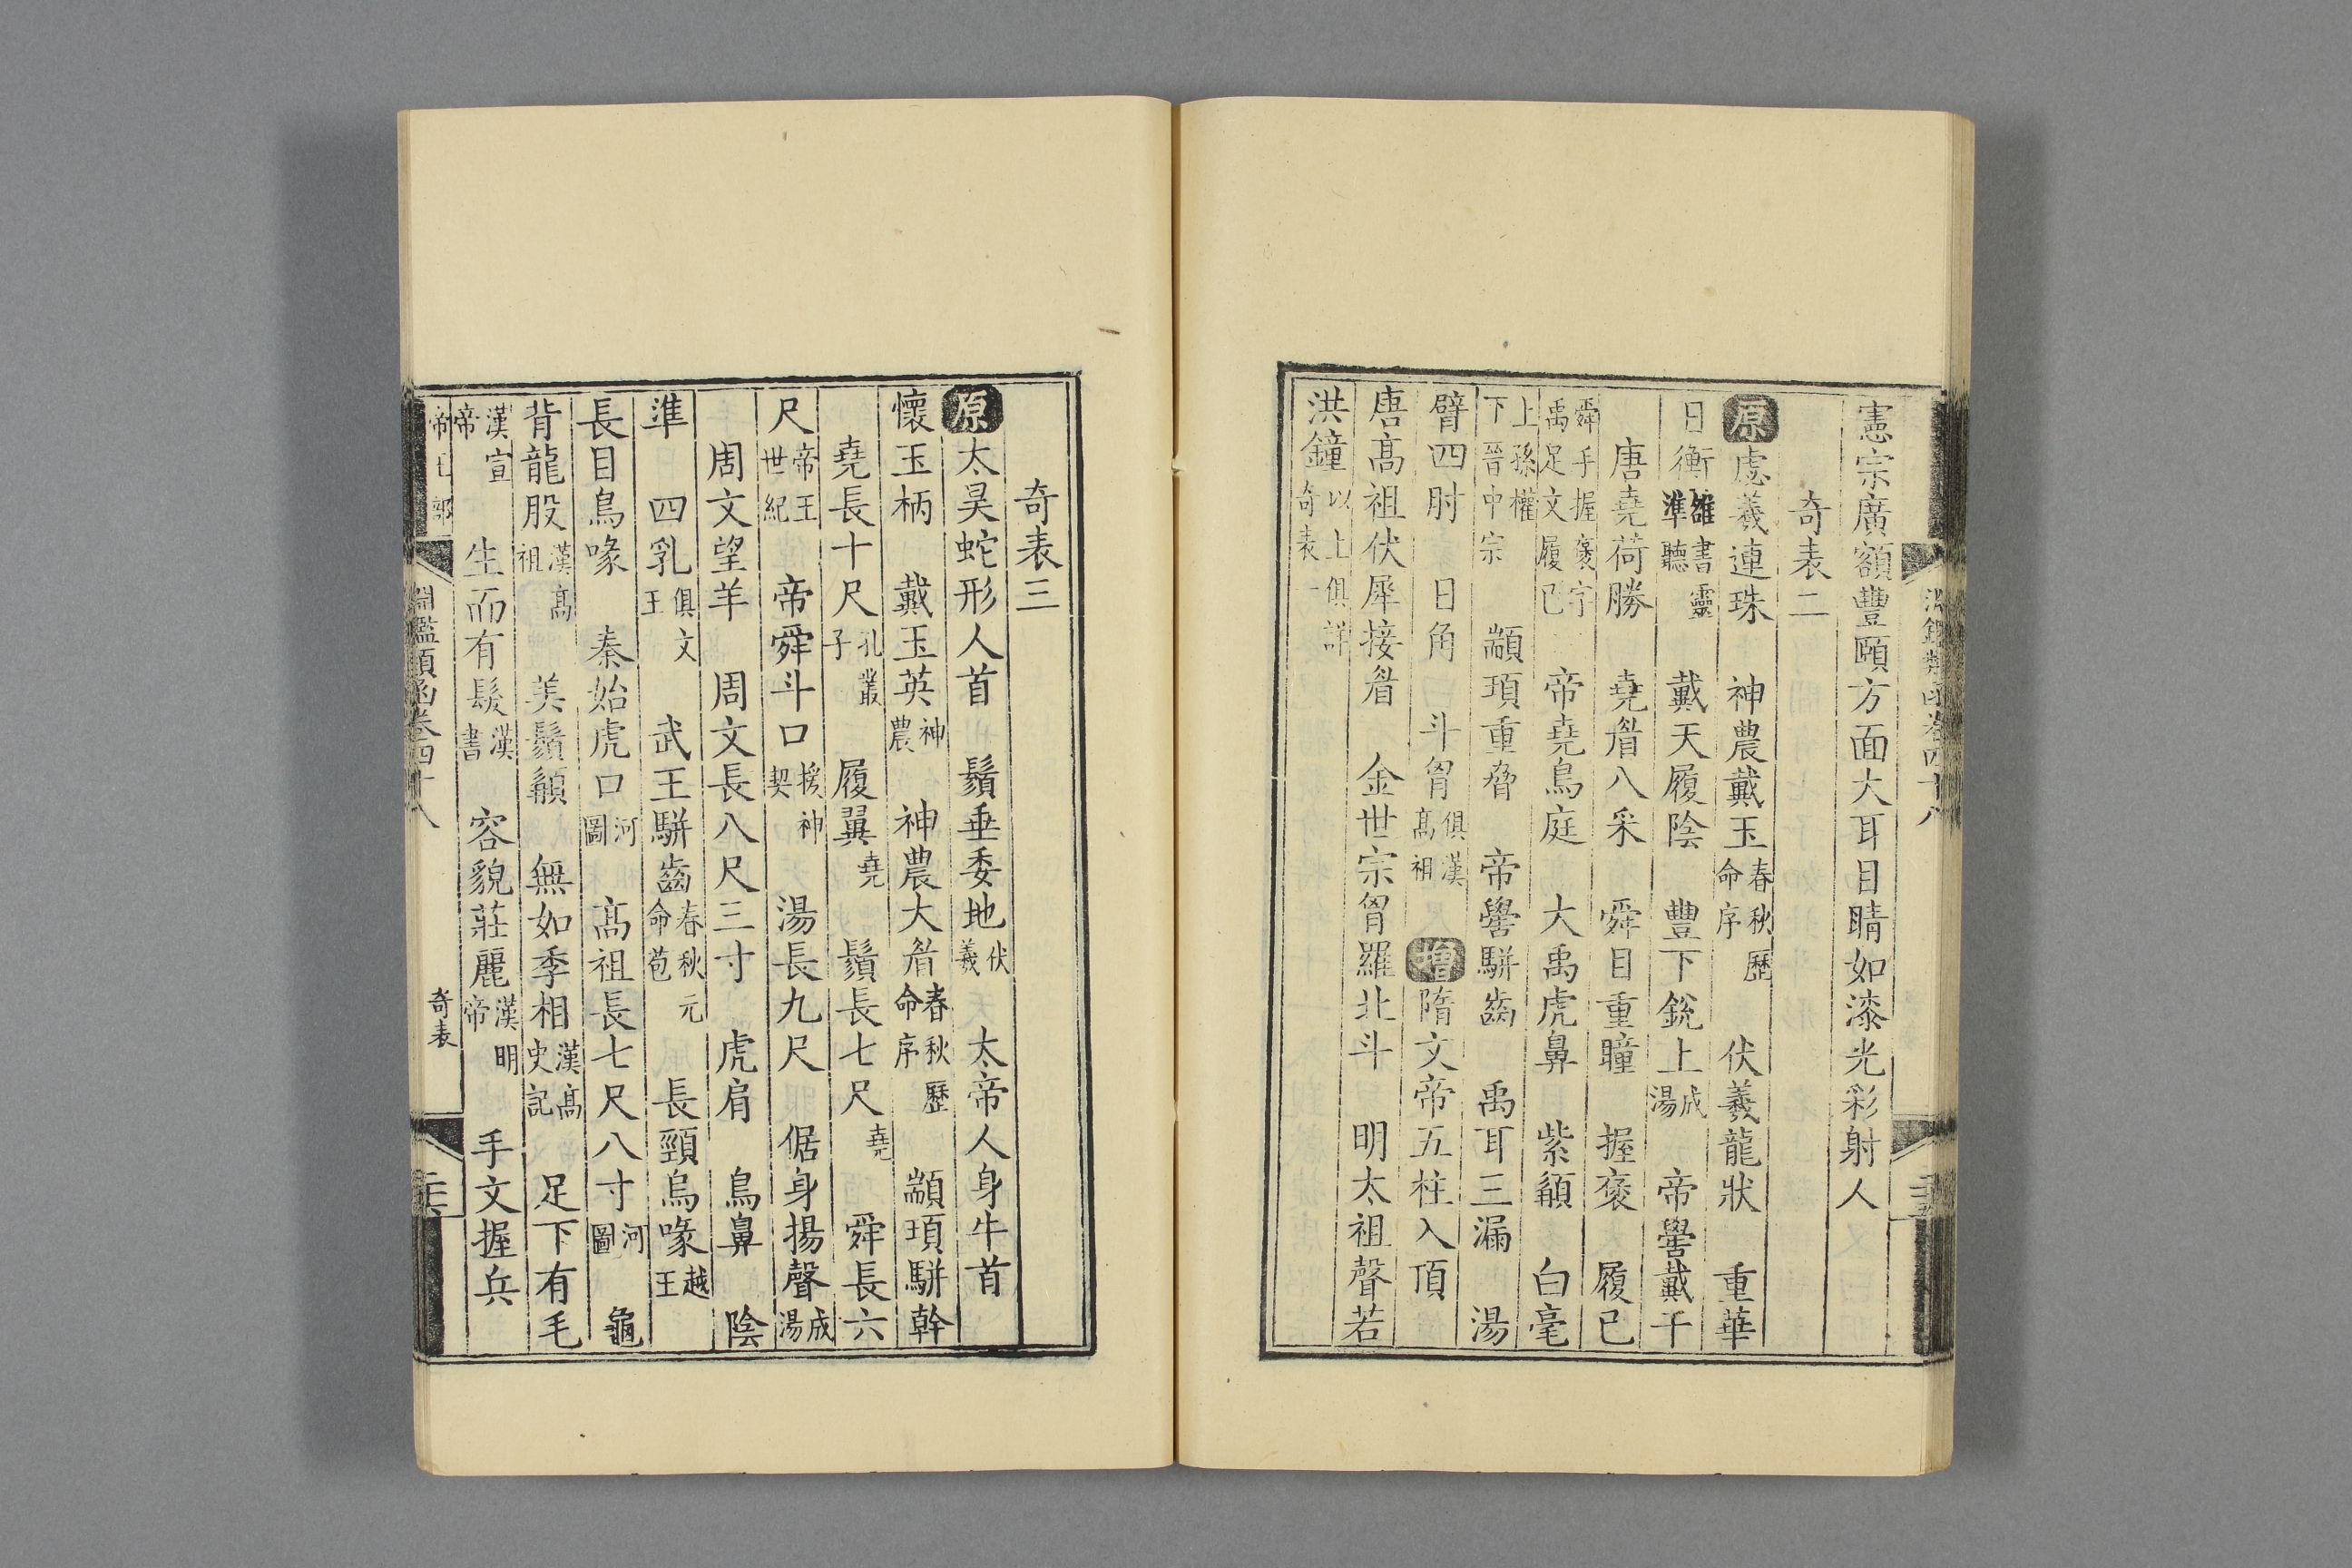 憲宗廣額豐頤方面大耳目睛如漆光彩射人
奇表二
原虙羲連珠 神農戴玉春秋歷命序 伏羲龍狀 重華
日衡雒書靈準聽 戴天履陰 豐下銳上成湯 帝嚳戴干
唐堯荷勝 堯眉八采 舜目重瞳 握褒 履已
舜手握褒字禹足文履已 帝堯鳥庭 大禹虎鼻 紫顱 白毫
上孫權下晉中宗 顓頊重脅 帝嚳駢齒 禹耳三漏 湯
臂四肘 日角 斗胷俱漢高祖 增隋文帝五柱入頂
唐高祖伏犀接眉 金世宗胷羅北斗 明太祖聲若
洪鐘以上俱詳奇表一
奇表三
原太昊蛇形人首 鬚垂委地伏羲 太帝人身牛首
懷玉柄 戴玉英神農 神農大眉春秋歷命序 顓頊駢幹
堯長十尺孔叢子 履翼堯 鬚長七尺堯 舜長六
尺帝王世紀 帝舜斗口援神契 湯長九尺 倨身揚聲成湯
周文望羊 周文長八尺三寸 虎肩 鳥鼻 陰
準 四乳俱文王 武王駢齒春秋元命苞 長頸鳥喙越王
長目鳥喙 秦始虎口河圖 高祖長七尺八寸河圖 龜
背龍股漢高祖 美鬚顱 無如季相漢高史記 足下有毛
漢宣帝 生而有髮漢書 容貌莊麗漢明帝 手文握兵
淵鑑類函卷四十八 奇表